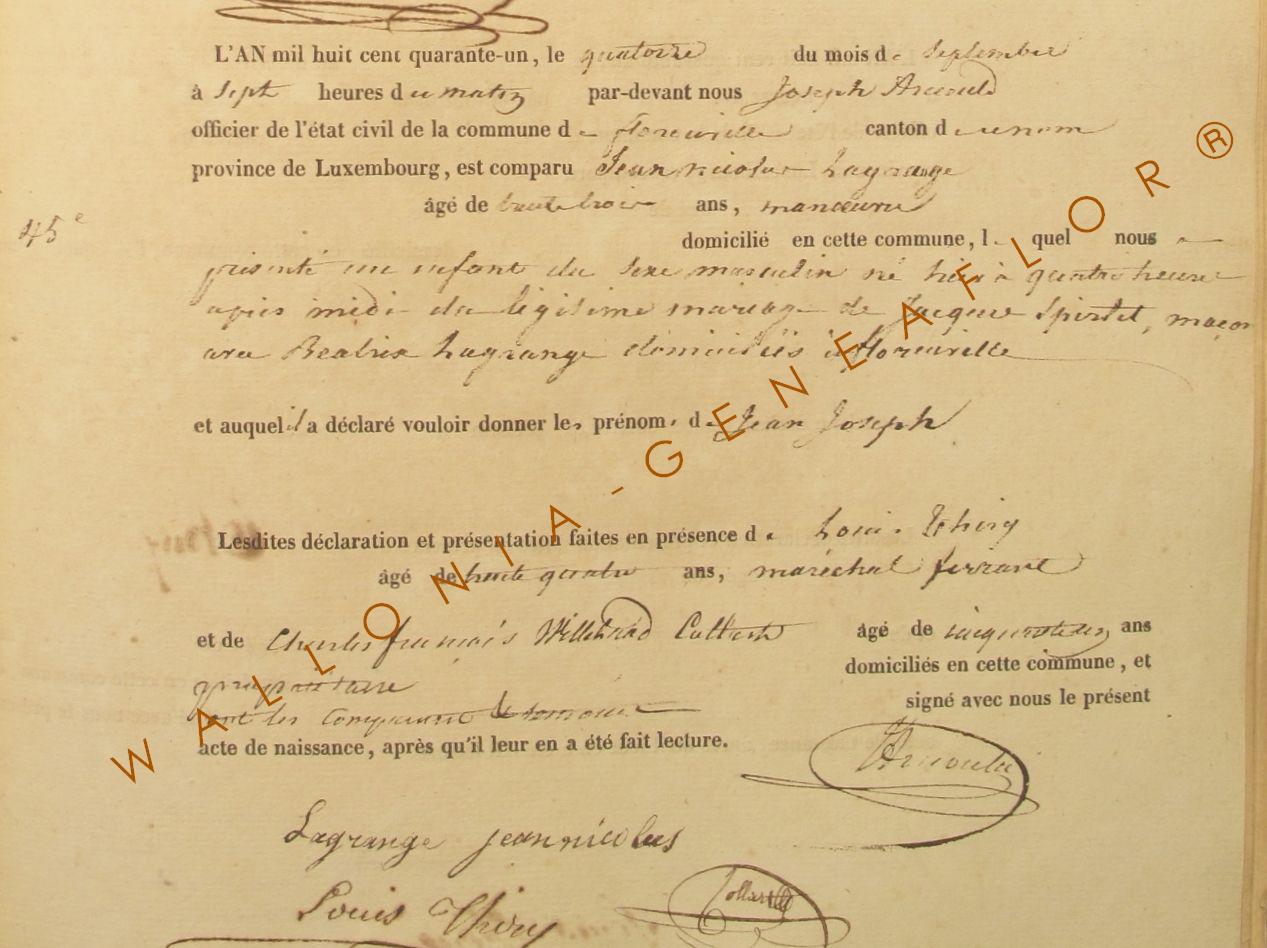 L'AN mil huit cent quarante-un, le quatorze du mois de septembre
à sept heures du matin par-devant nous Joseph Arnould
officier de l'état civil de la commune de florenville canton du nom
province de Luxembourg, est comparu Jean nicolas Lagrange
âgé de trente trois ans, manoeuvre
45e
domicilié en cette commune, lequel nous a
présenté un enfant du sexe masculin né hier à quatre heures
après midi du légitime mariage de Jacques Spirlet, maçon
avec Beatrix Lagrange domiciliés à florenville
et auquel il a déclaré vouloir donner les prénoms de Jean Joseph
Lesdites déclaration et présentation faites en présence de Louis Thiry
âgé de trente quatre ans, maréchal ferrant
et de Charles françois Willibrord Collard âgé de ans
propriétaire domiciliés en cette commune, et
ont les comparant & témoins signé avec nous le présent
acte de naissance, après qu'il leur en a été fait lecture.
JArnould
Lagrange jean nicolas
Louis Thiry Collard
WALLONIA-GENEAFLOR ®